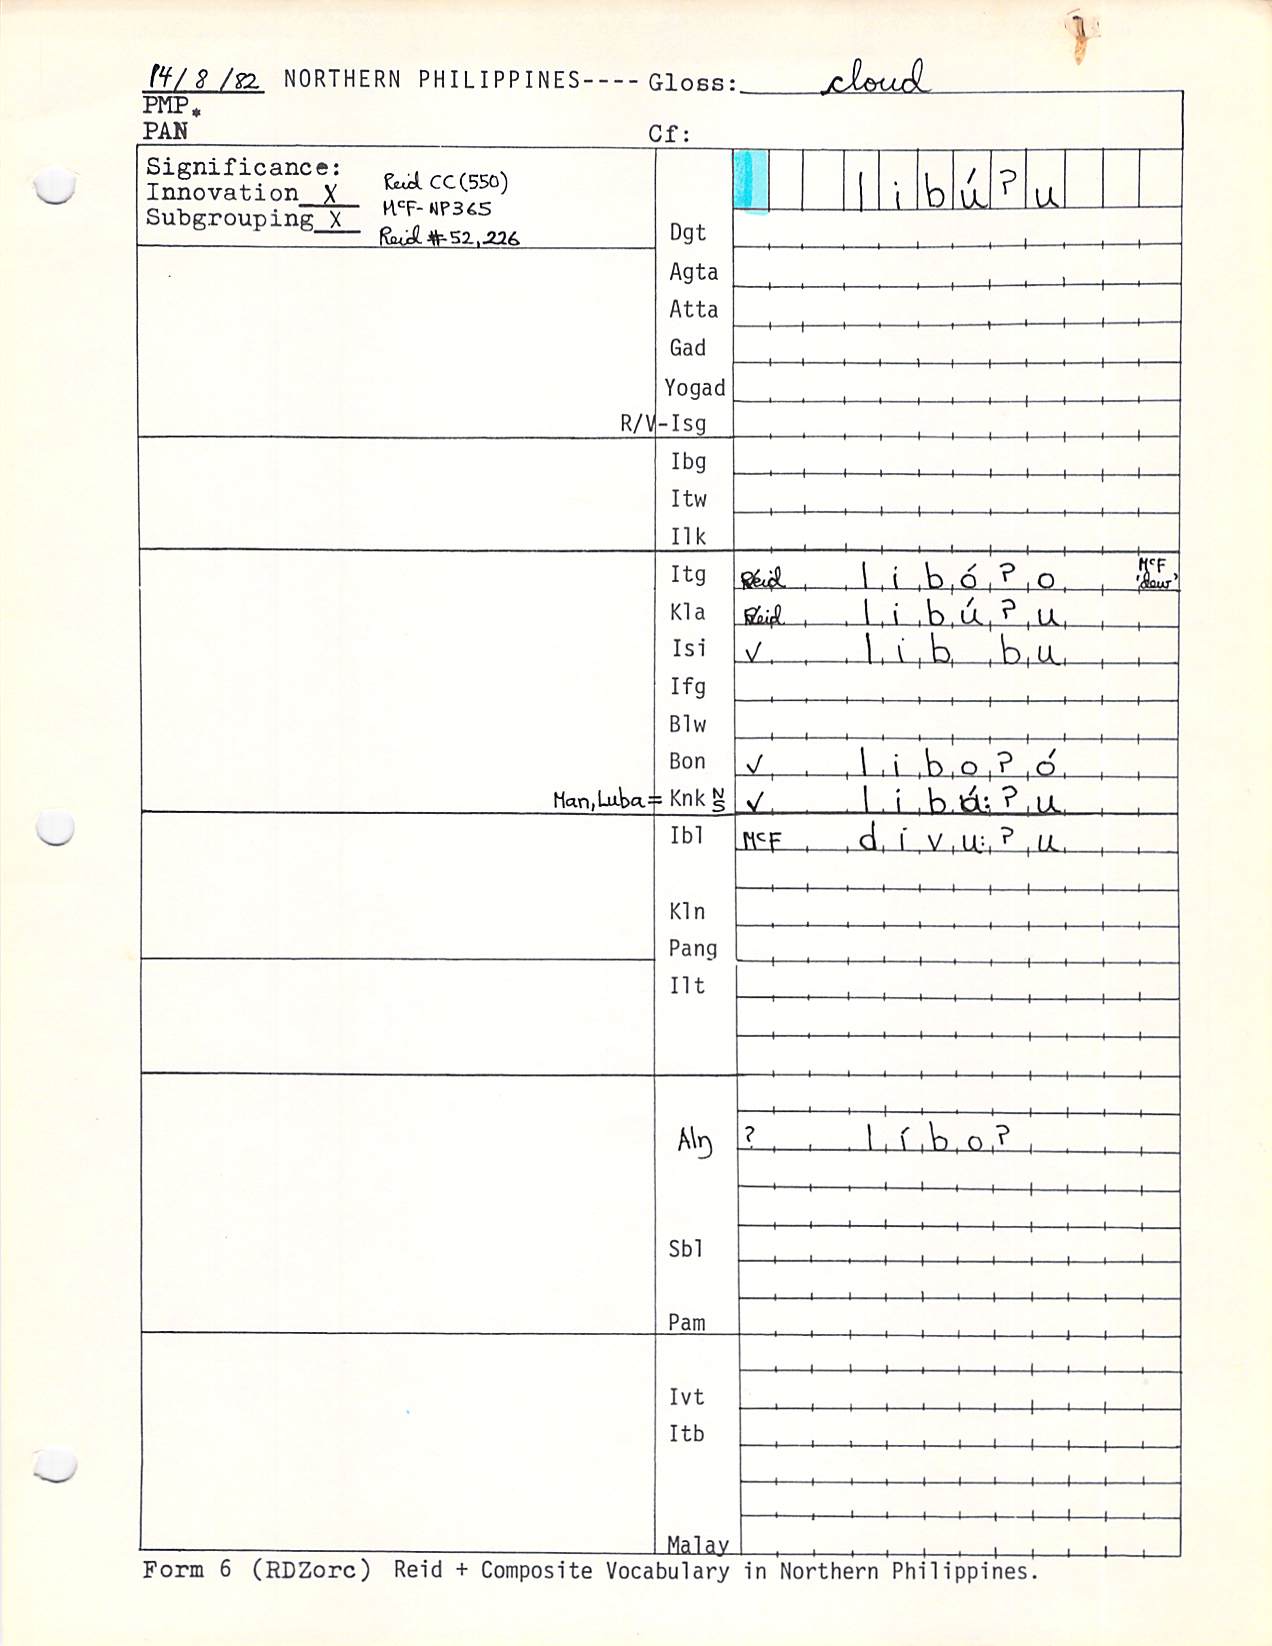 14/8/82 NORTHERN PHILIPPINES---- Gloss: cloud
PMP*
PAN Cf:
Significance:
Innovation X Reid CC(550)
Subgrouping X McF-NP365
Reid #52,226
libúʔu
Dgt
Agta
Atta
Gad
Yogad
R/V-Isg
Ibg
Itw
Ilk
Itg Reid libóʔo McF 'dew'
Kla Reid libúʔu
Isi ✓ lib bu
Ifg
Blw
Bon ✓ liboʔó
Man, Luba = Knk N S ✓ libú:ʔu
Ibl McF divu:ʔu
Kln
Pang
Ilt
Alŋ ? líboʔ
Sbl
Pam
Ivt
Itb
Malay
Form 6 (RDZorc) Reid + Composite Vocabulary in Northern Philippines.